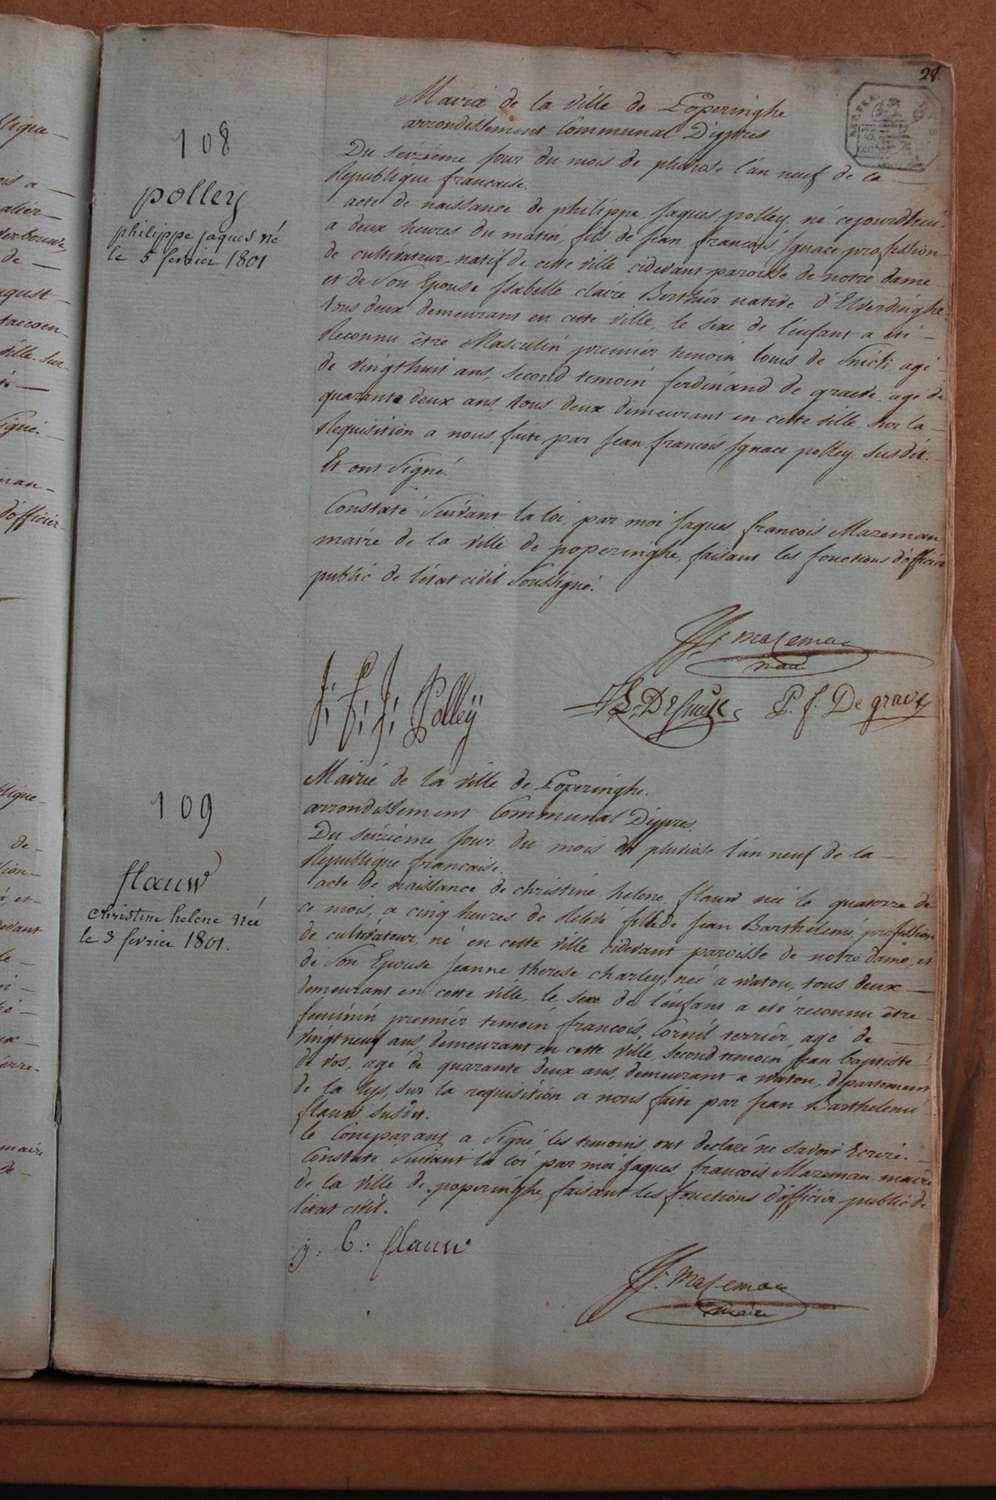 28
108
polley
philippe jaques né
le 5 fevrier 1801
Mairie de la ville de Poperinghe
arrondissement Communal Dijpres
Du seizieme jour du mois de pluviose l'an neuf de la
Republique francaise.
acte de naissance de philippe jaques polley, né cejourdhui
a deux heures du matin, fils de jean francois ignace profession
de cultivateur natif de cette ville cidevant paroisse de notre dame
et de son Epouse Isabelle claire Berthier native d'Elverdinghe
tous deux demeurant en cette ville, le sexe de l'enfant a eté
Reconnu être Masculin premier temoin louis de agé
de vingthuit ans, second temoin ferdinand de graeve agé de
quarante deux ans tous deux demeurant en cette ville sur la
Requisition a nous faite par jean francois ignace polley susdit.
Et ont signé
Constaté suivant la loi, par moi jaques francois Mazeman
maire de la ville de poperinghe, faisant les fonctions d'officier
public de l'etat civil soussigné.
JF. Mazeman
maire
J: F: J: Polleÿ
P. f. De grave
109
flauw
christine helene née
le 3 fevrier 1801.
Mairie de la ville de Poperinghe.
arrondissement Communal Dijpres.
Du seizieme jour du mois de pluviose l'an neuf de la
Republique francaise.
l'acte de naissance de christine helene flauw née le quatorze de
ce mois, a cinq heures de fille de jean Barthelemi profession
de cultivateur, né en cette ville cidevant paroisse de notre dame, et
de son Epouse jeanne therese charley, née a watou, tous deux
demeurant en cette ville, le sexe de l'enfant a eté reconnu être
feminin premier temoin francois Cornil verrier, agé de
vingtneuf ans, demeurant en cette ville, second temoin jean baptiste
de vos, agé de quarante deux ans, demeurant a watou, departement
de la Lys, sur la requisition a nous faite par jean Barthelemi
flauw susdit.
le Comparant a signé les temoins ont declaré ne savoir Ecrire.
Constaté suivant la loi par moi jaques francois Mazeman maire
de la ville de poperinghe faisant les fonctions d'officier public de
l'etat civil.
j: B: flauw
JF. Mazeman
maire